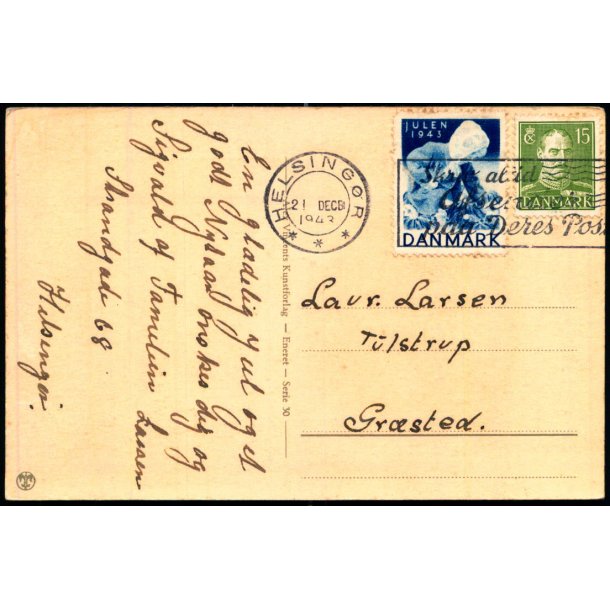 En glædelig jul og et
godt Nytaar ønskes dig og
Sigvald af Familien Larsen
Strandgade 68
Helsingør.
Vincents Kunstforlag — Eneret — Serie 30
HELSINGØR
21 DECB
1943
JULEN
1943
DANMARK
15
DANMARK
Skriv altid
paa Deres Post
Laur. Larsen
Tulstrup
Græsted.